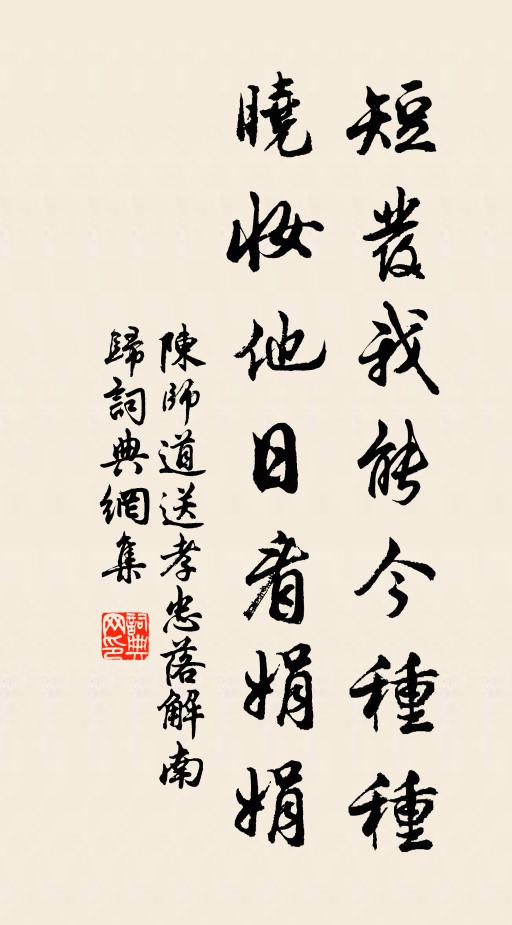 短發我能今種種
曉妝他日看娟娟
陳師道送孝忠落解南
歸詞典網集
詞典网印